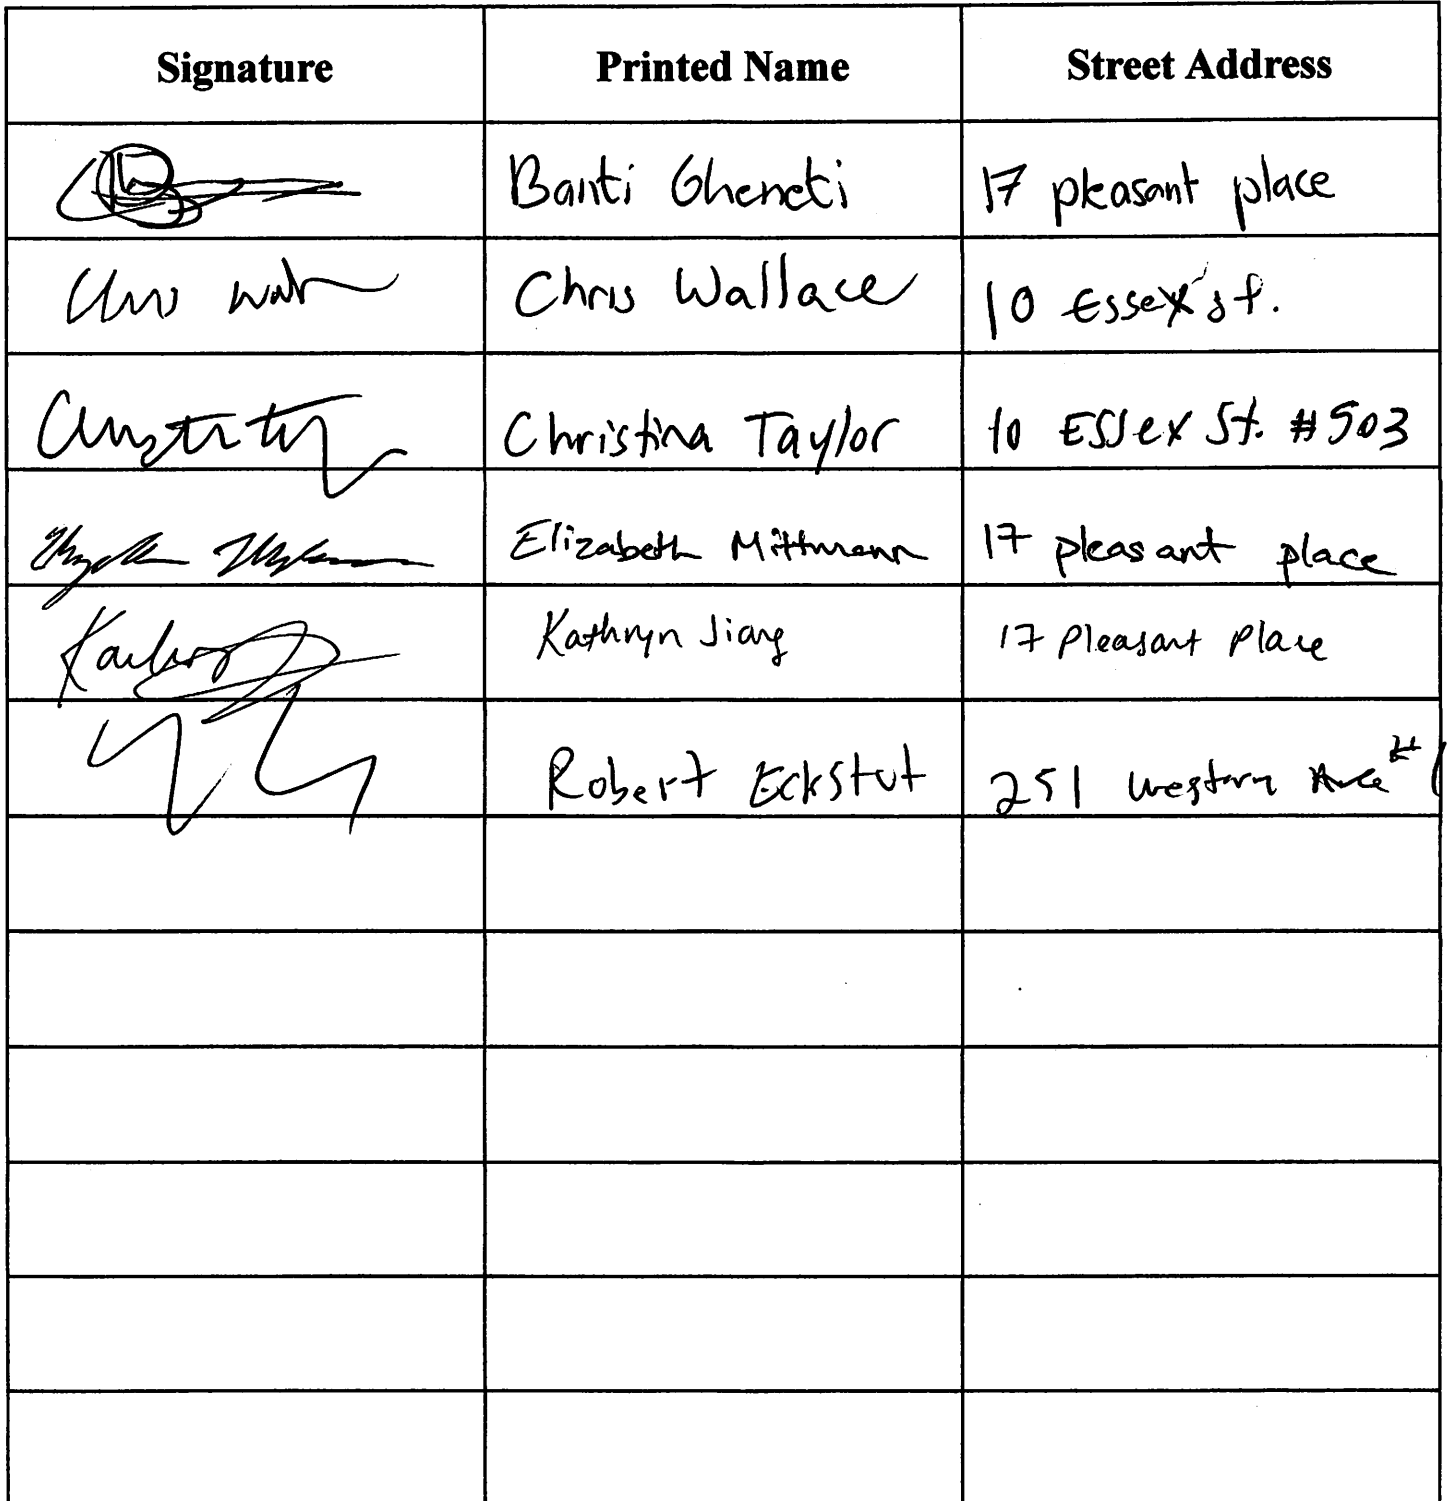 Signature Printed Name Street Address
Banti Gheneti 17 pleasant place
Chris Wallace 10 Essex st.
Christina Taylor 10 Essex St. #503
Elizabeth Mittmann 17 pleasant place
Kathryn Jiang 17 Pleasant Place
Robert Eckstut 251 western Ave #